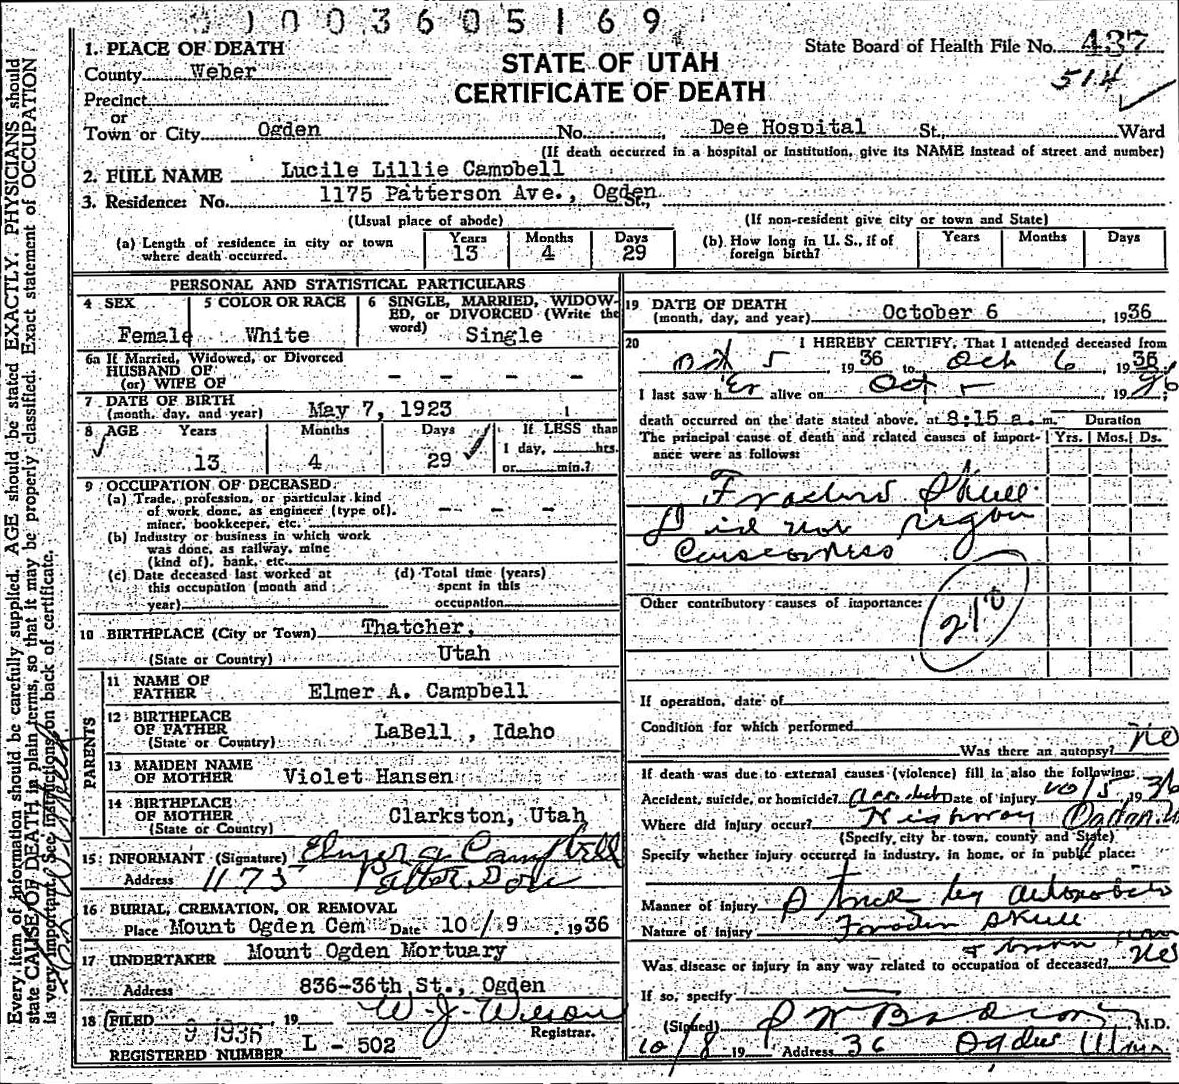 1003605169
State Board of Health File No. 437
514
STATE OF UTAH
CERTIFICATE OF DEATH
1. PLACE OF DEATH
County Weber
Precinct
or
Town or City Ogden No. , Dee Hospital St., Ward
(If death occurred in a hospital or institution, give its NAME instead of street and number)
2. FULL NAME Lucile Lillie Campbell
3. Residence: No. 1175 Patterson Ave., Ogden St.,
(Usual place of abode) (If non-resident give city or town and State)
(a) Length of residence in city or town where death occurred. Years 13 Months 4 Days 29
(b) How long in U. S., if of foreign birth? Years Months Days
PERSONAL AND STATISTICAL PARTICULARS
4 SEX Female
5 COLOR OR RACE White
6 SINGLE, MARRIED, WIDOWED, or DIVORCED (Write the word) Single
6a If Married, Widowed, or Divorced
HUSBAND OF
(or) WIFE OF - - - -
7 DATE OF BIRTH
(month, day, and year) May 7, 1923
8 AGE Years 13 Months 4 Days 29 If LESS than 1 day, hrs. or min.?
9 OCCUPATION OF DECEASED
(a) Trade, profession, or particular kind
of work done, as engineer (type of),
miner, bookkeeper, etc. - - -
(b) Industry or business in which work
was done, as railway, mine
(kind of), bank, etc.
(c) Date deceased last worked at
this occupation (month and
year)
(d) Total time (years)
spent in this
occupation
10 BIRTHPLACE (City or Town) Thatcher,
(State or Country) Utah
PARENTS
11 NAME OF
FATHER Elmer A. Campbell
12 BIRTHPLACE
OF FATHER LaBell , Idaho
(State or Country)
13 MAIDEN NAME
OF MOTHER Violet Hansen
14 BIRTHPLACE
OF MOTHER Clarkston, Utah
(State or Country)
15 INFORMANT (Signature) Elmer A Campbell
Address 1175
16 BURIAL, CREMATION, OR REMOVAL
Place Mount Ogden Cem Date 10/9, 1936
17 UNDERTAKER Mount Ogden Mortuary
Address 836-36th St., Ogden
18 FILED 9 1936 19 W. J. Wilson
Registrar.
REGISTERED NUMBER L - 502
19 DATE OF DEATH
(month, day, and year) October 6 , 1936
20 I HEREBY CERTIFY, That I attended deceased from
Oct 5, 1936 to Oct 6, 1936
I last saw her alive on Oct 5, 1936;
death occurred on the date stated above, at 8:15 a. m.
The principal cause of death and related causes of importance were as follows:
Duration
Yrs. Mos. Ds.
Fractured Skull
Did not regain
Consciousness
Other contributory causes of importance:
210
If operation, date of
Condition for which performed
Was there an autopsy? no
If death was due to external causes (violence) fill in also the following:
Accident, suicide, or homicide? accident Date of injury 10/5, 1936
Where did injury occur? Highway Ogden U
(Specify city or town, county and State)
Specify whether injury occurred in industry, in home, or in public place:
Manner of injury Struck by automobile
Nature of injury Fracture skull
Was disease or injury in any way related to occupation of deceased? no
If so, specify
(Signed) M.D.
10/8 19 Address 36 Ogden Utah
Every item of information should be carefully supplied. AGE should be stated EXACTLY. PHYSICIANS should
state CAUSE OF DEATH in plain terms, so that it may be properly classified. Exact statement of OCCUPATION
is very important. See instructions on back of certificate.